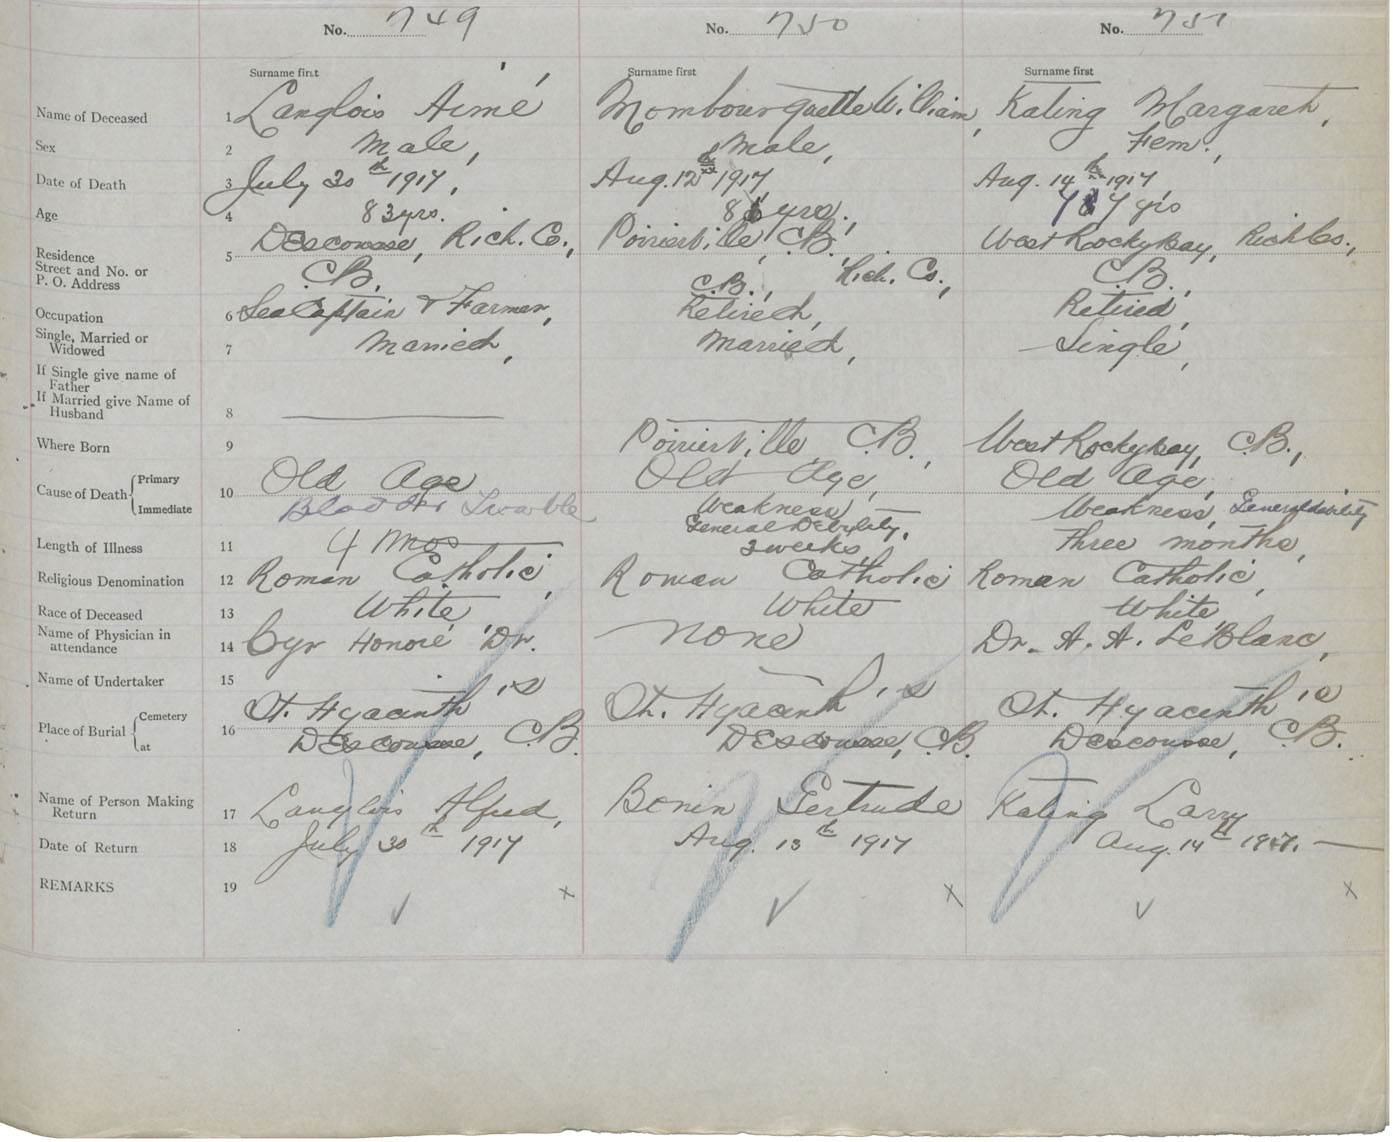 No. 749 No. 750 No. 751
Surname first Surname first Surname first
Name of Deceased 1 Langlois Aimé Mombourquette William, Kating Margaret,
Sex 2 Male, Male, Fem.,
Date of Death 3 July 30th 1917, Aug. 12th 1917, Aug. 14th 1917,
Age 4 83 yrs. yrs., yrs
Residence
Street and No. or
P. O. Address 5 DEscousse, Rich. Co., Poirierville, C.B. West Rocky Bay, Rich Co.,
C.B. C.B., Rich. Co., C.B.,
Occupation 6 Sea Captain & Farmer, Retired, Retired,
Single, Married or
Widowed 7 Married, Married, Single,
If Single give name of
Father
If Married give Name of
Husband 8
Where Born 9 Poirierville, C.B., West Rocky Bay, C.B.,
Cause of Death Primary 10 Old Age Old Age, Old Age,
Immediate Bladder Trouble Weakness Weakness, General debility
General Debility,
Length of Illness 11 4 Mos 2 weeks, three months,
Religious Denomination 12 Roman Catholic, Roman Catholic Roman Catholic,
Race of Deceased 13 White White White
Name of Physician in
attendance 14 Cyr Honoré Dr. None Dr. A. A. LeBlanc,
Name of Undertaker 15
Place of Burial Cemetery 16 St. Hyacinth's St. Hyacinth's St. Hyacinth's
at DEscousse, C.B. DEscousse, C.B. Descousse, C.B.
Name of Person Making
Return 17 Langlois Alfred, Bonin Gertrude Kating Larry
Date of Return 18 July 30th 1917 Aug. 13th 1917 Aug. 14th 1917.
REMARKS 19